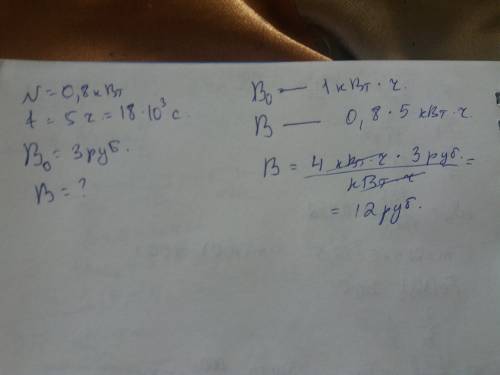 N = 0,8 кВт
t = 5 ч = 18·10³ с.
B₀ = 3 руб.
B = ?
B₀ — 1 кВт · ч.
B — 0,8 · 5 кВт·ч.
B = 4 кВт·ч · 3 руб. / кВт·ч =
= 12 руб.